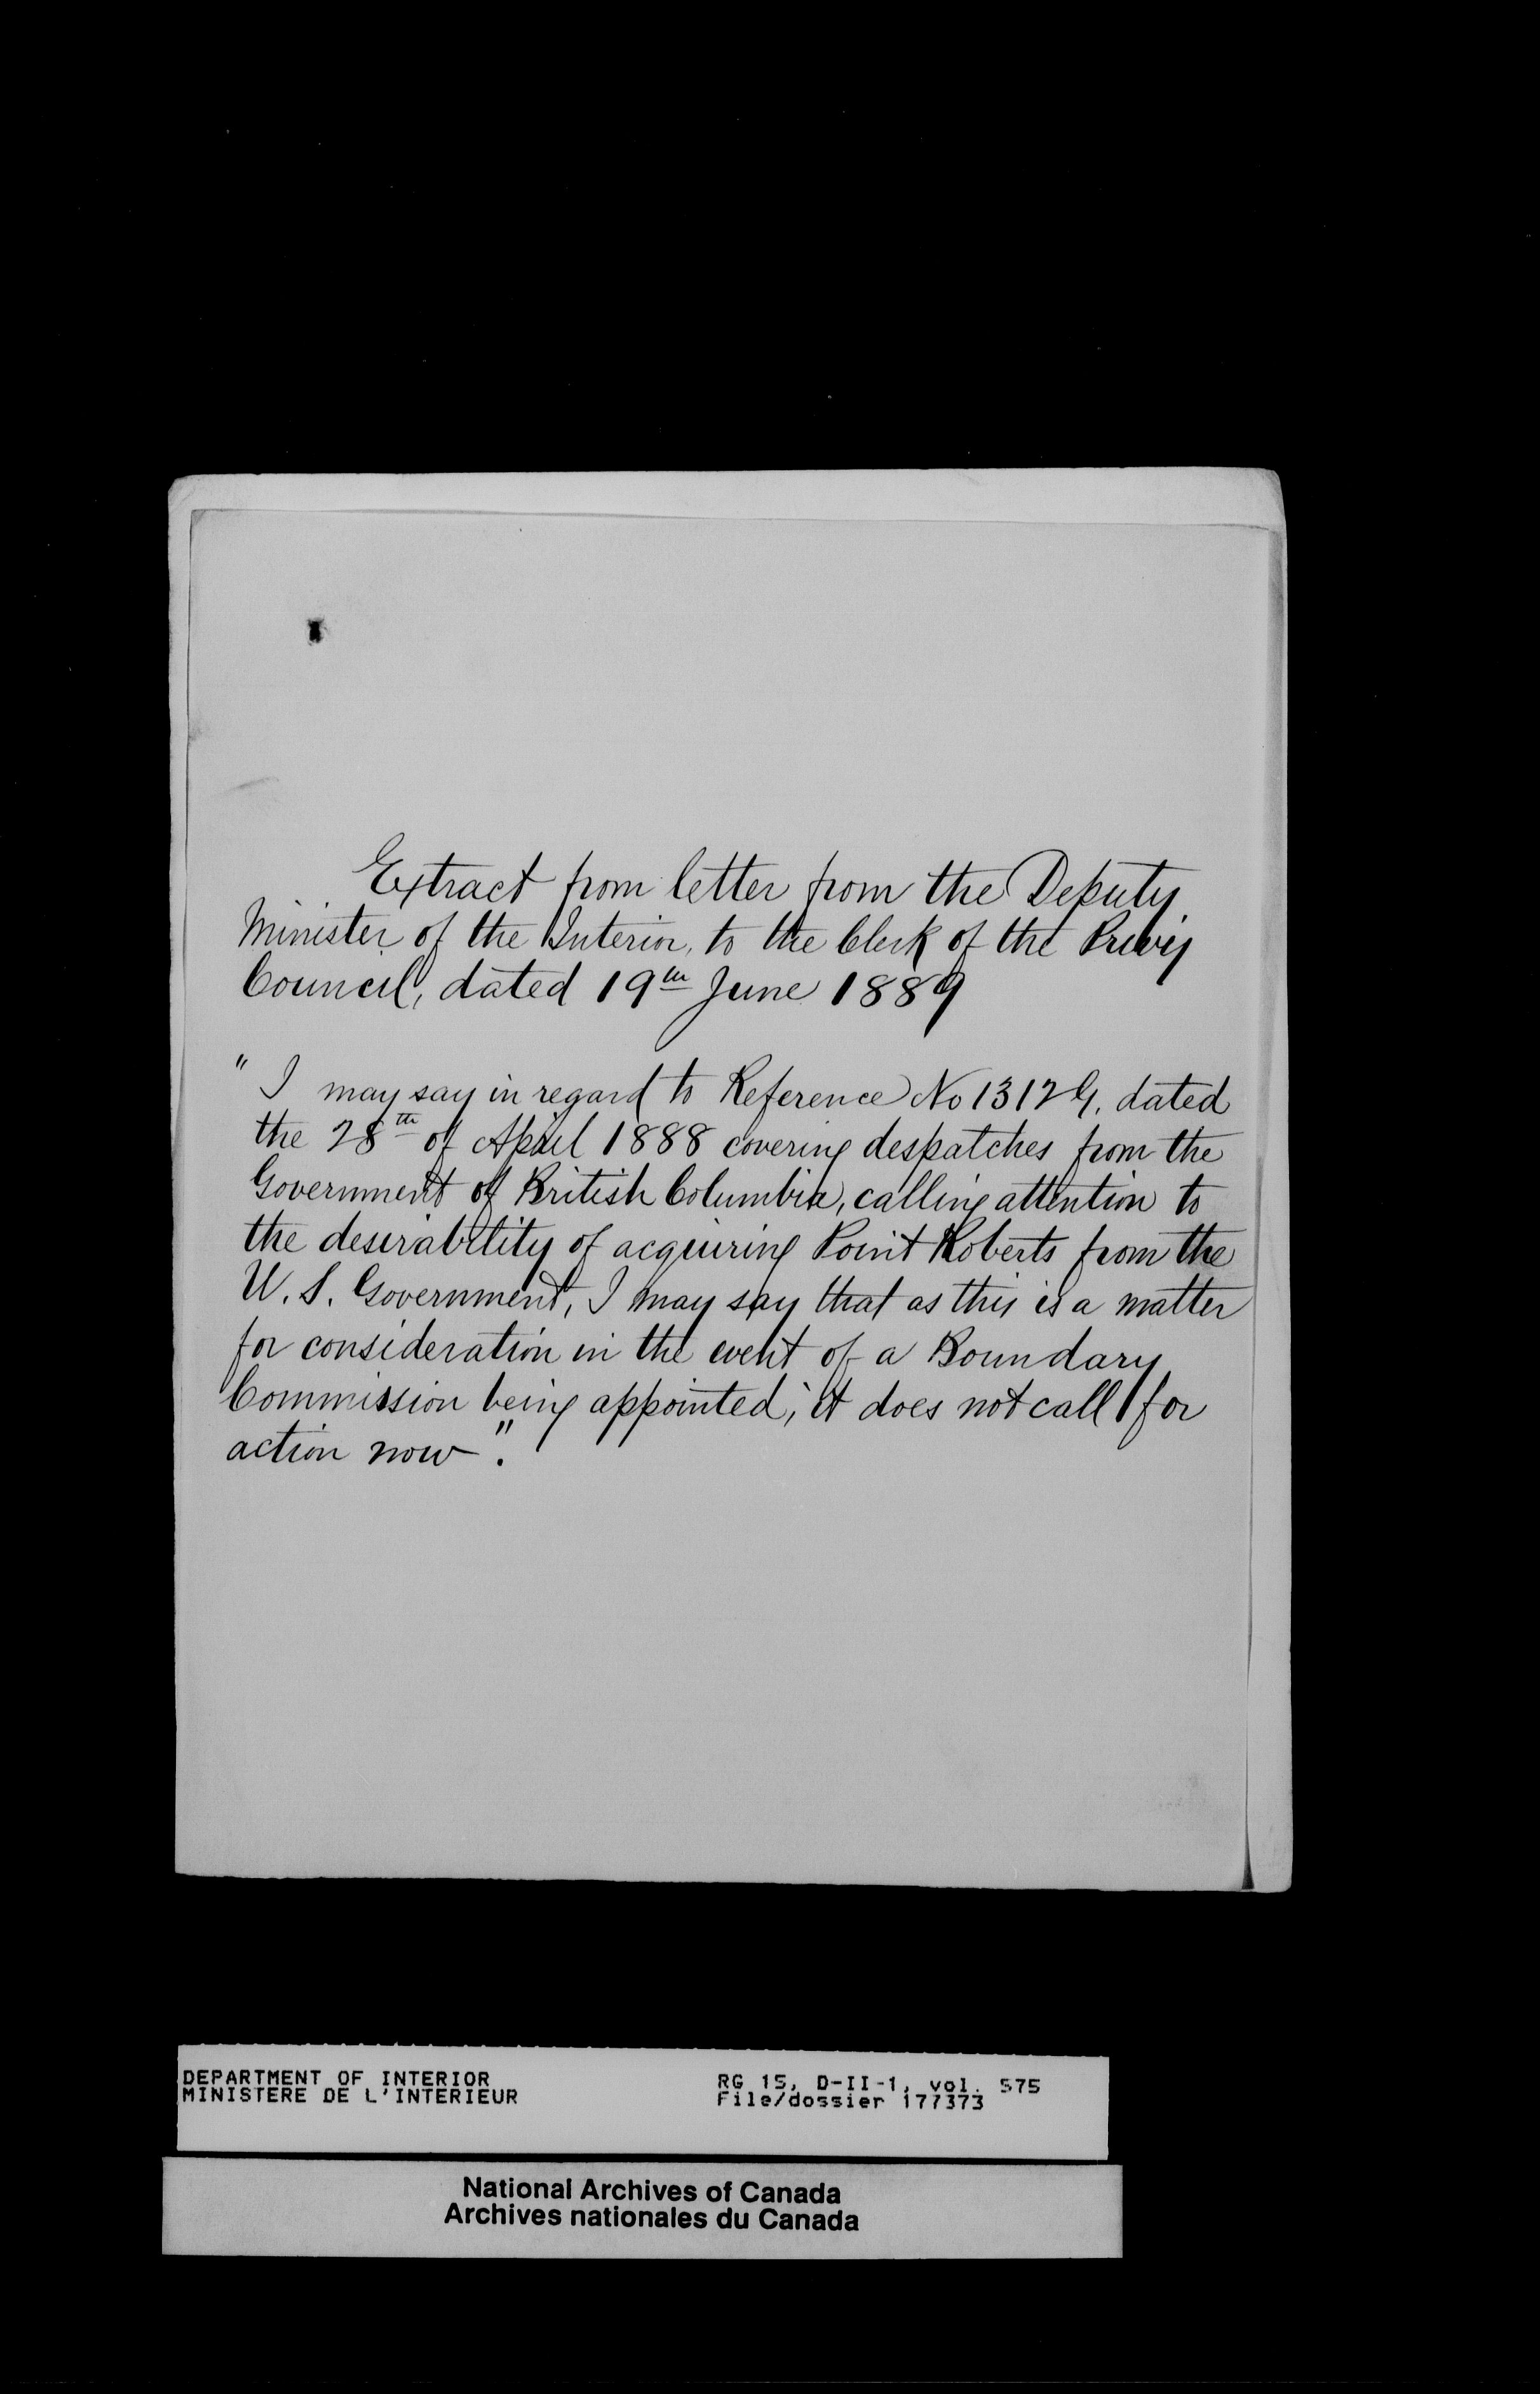 Extract from letter from the Deputy
Minister of the Interior, to the Clerk of the Privy
Council, dated 19th June 1889
" I may say in regard to Reference No 1312 G. dated
the 28th of April 1888 covering despatches from the
Government of British Columbia, calling attention to
the desirability of acquiring Point Roberts from the
U. S. Government, I may say that as this is a matter
for consideration in the event of a Boundary
Commission being appointed, it does not call for
action now".
DEPARTMENT OF INTERIOR
MINISTERE DE L'INTERIEUR
RG 15, D-II-1, vol. 575
File/dossier 177373
National Archives of Canada
Archives nationales du Canada